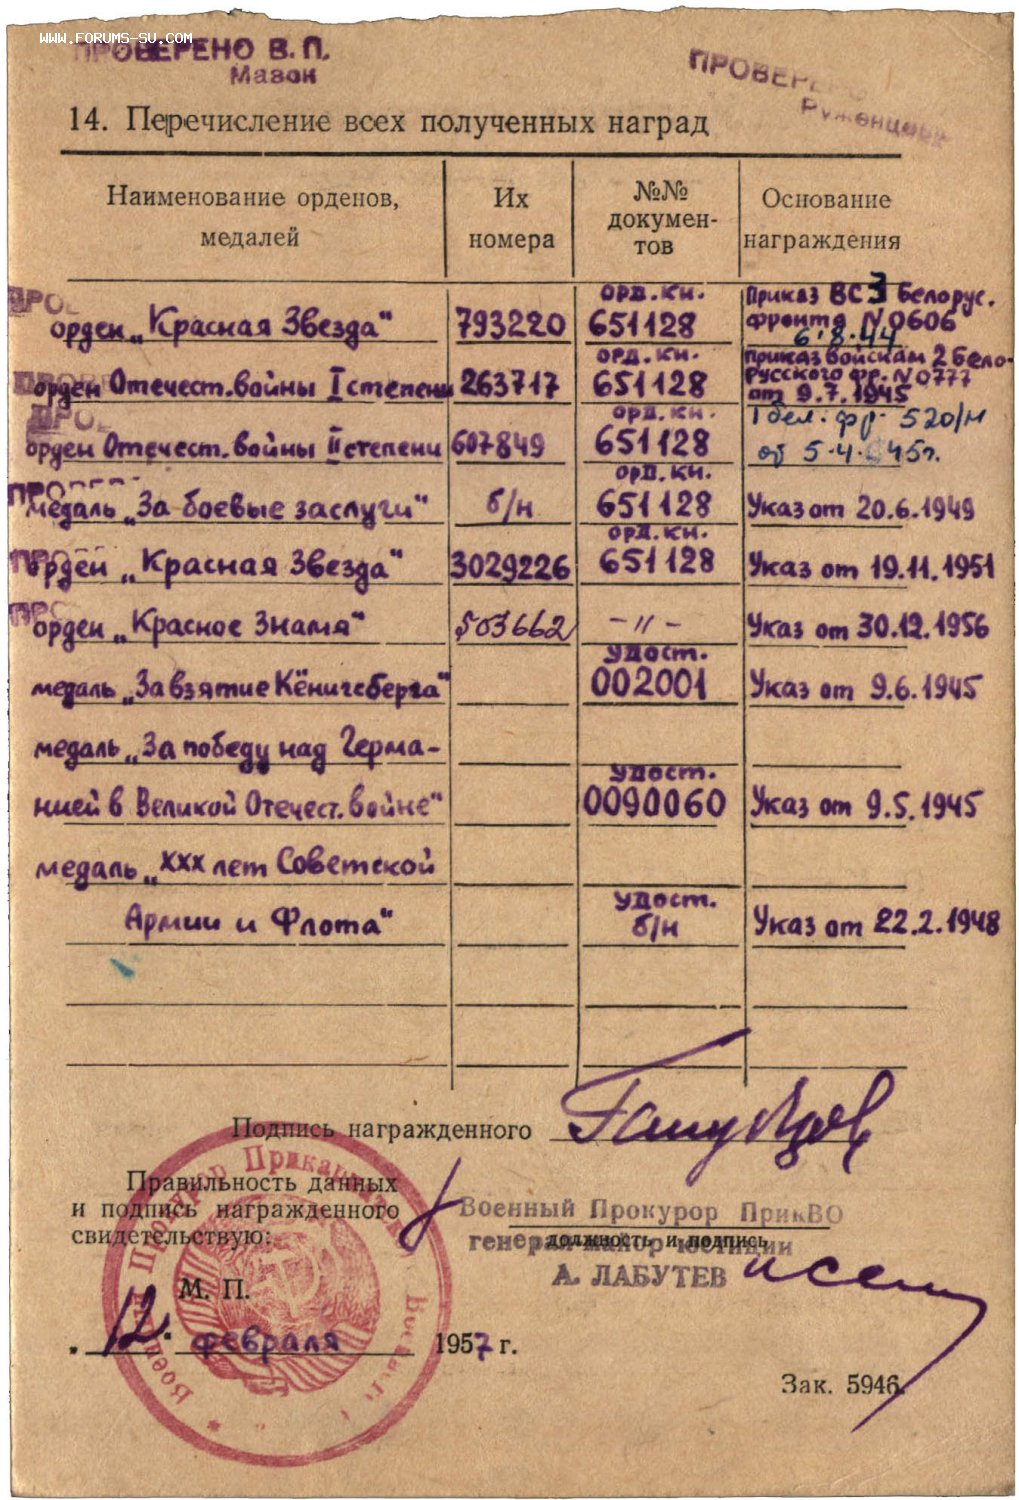 www.forums-su.com
ПРОВЕРЕНО В. П.
Мазон
ПРОВЕРЕНО
14. Перечисление всех полученных наград
Наименование орденов, медалей
Их номера
№№ документов
Основание награждения
орд. кн.
Приказ ВС 3 Белорус.
орден „Красная Звезда"
793220
651128
фронта N 0606
6.8.44
орд. кн.
приказ войскам 2 Бело-
орден Отечест. войны I степени
263717
651128
русского фр. N 0777
от 9.7.1945
орд. кн.
1 бел. фр. 520/н
орден Отечест. войны II степени
607849
651128
от 5.4.45г.
орд. кн.
медаль „За боевые заслуги"
б/н
651128
Указ от 20.6.1949
орд. кн.
орден „Красная Звезда"
3029226
651128
Указ от 19.11.1951
орден „Красное Знамя"
503662
-"-
Указ от 30.12.1956
удост.
медаль „За взятие Кёнигсберга"
002001
Указ от 9.6.1945
медаль „За победу над Герма-
удост.
нией в Великой Отечест. войне"
0090060
Указ от 9.5.1945
медаль „XXX лет Советской
удост.
Армии и Флота"
б/н
Указ от 22.2.1948
Подпись награжденного
Правильность данных
и подпись награжденного
свидетельствую:
Военный Прокурор ПрикВО
должность и подпись
генерал-майор юстиции
А. ЛАБУТЕВ
М. П.
„12" февраля 1957 г.
Зак. 5946.